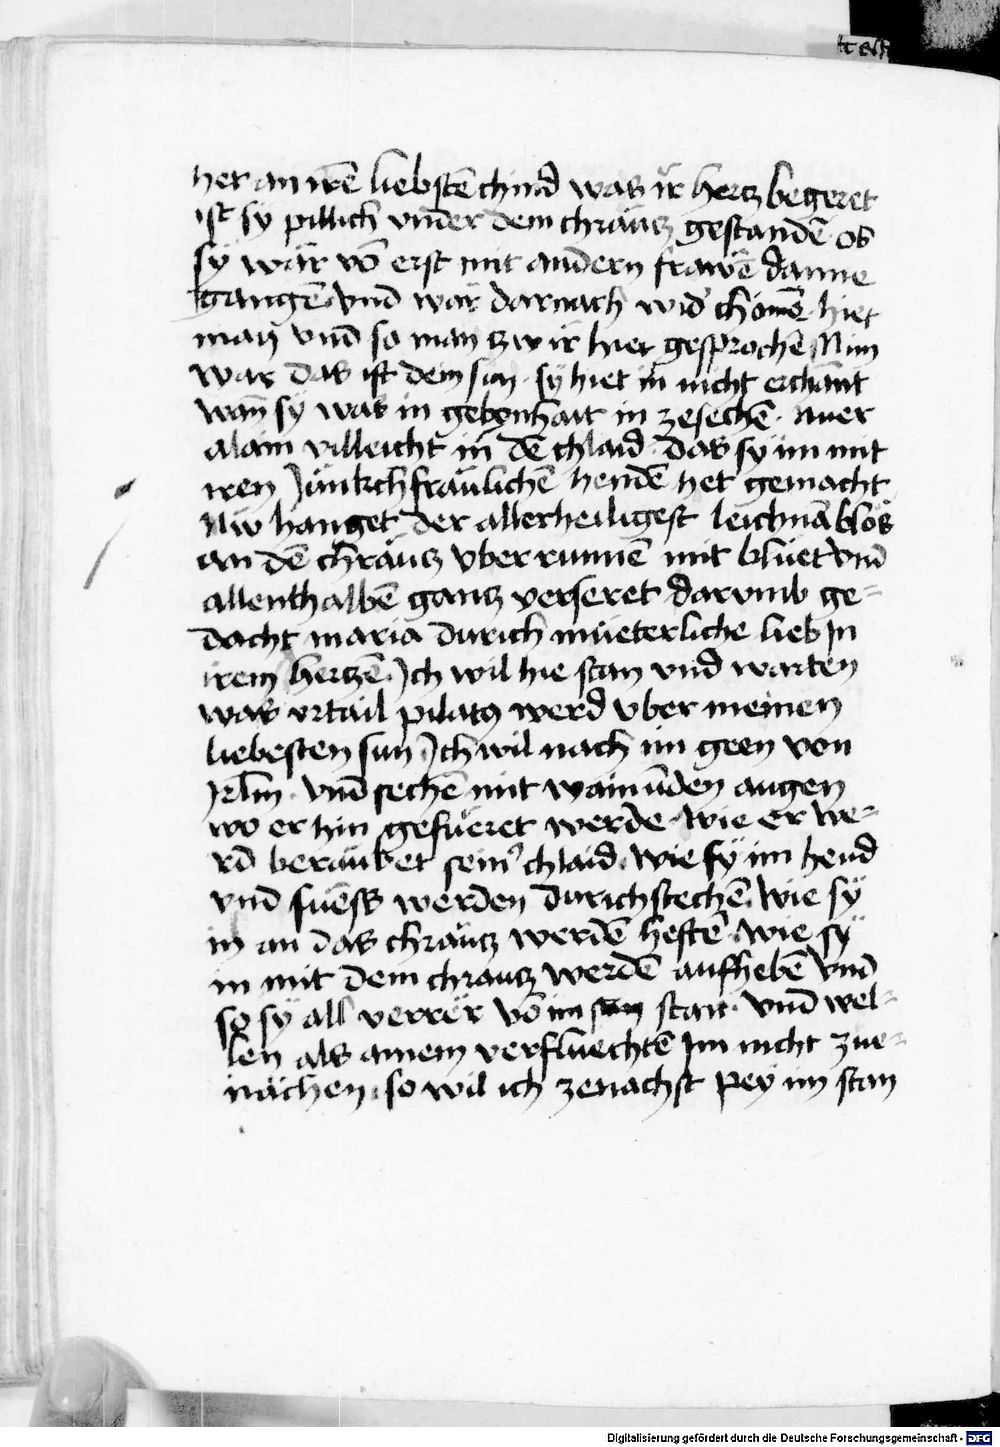 het an irē liebstē chind was ir hercz begeret
ist sy pillich vnder dem chräucz gestandē. ob
sÿ wär vō erst mit andern frawē danne
gangē. vnd wär darnach wid' chömē. hiet
man vnd so man zw ir hiet gesprochē Nim
war das ist dein sun. sÿ hiet in nicht erchānt
wañ sy was in gebonhait in zesechē. nuer
alain villeicht in dē chlaid. das sÿ im mit
iren Junkchfräulichē hendē het gemacht
Nw hanget der allerheiligest leichnā blos
an dē chräucz vber runnē mit bluet vnd
allenthalbē gancz verseret darvmb ge=
dacht maria durich müeterliche lieb in
irem herczē. Ich wil hie stan vnd warten
was vrtail pilatꝰ werd vber meinen
liebesten sun Ich wil nach im geen von
Jrlm̄. vnd sechē mit wainūden augen
wo er hin gefüeret werde. wie er we=
rd beräubet sein' chlaid. wie sÿ im hend
vnd füess werden durichstechē. wie sÿ
in an das chräucz werdē heftē. wie sÿ
in mit dem chraucz werdē aufhebē vnd
so sÿ all verrer vō im stan. vnd wel=
len als ainem verfluechtē Im nicht zue=
nächen. so wil ich zenachst peÿ im stan
Digitalisierung gefördert durch die Deutsche Forschungsgemeinschaft - DFG